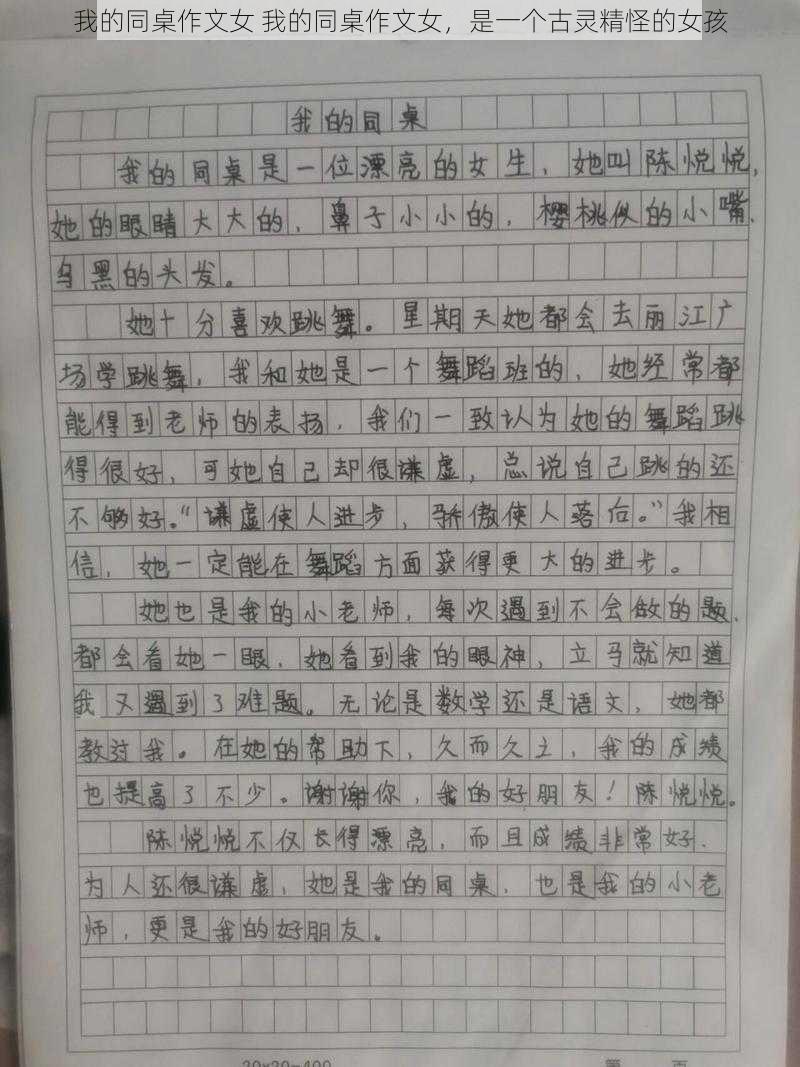 我的同桌作文女 我的同桌作文女，是一个古灵精怪的女孩
我的同桌
我的同桌是一位漂亮的女生，她叫陈悦悦，
她的眼睛大大的，鼻子小小的，樱桃似的小嘴，
乌黑的头发。
她十分喜欢跳舞。星期天她都会去丽江广
场学跳舞，我和她是一个舞蹈班的，她经常都
能得到老师的表扬，我们一致认为她的舞蹈跳
得很好，可她自己却很谦虚，总说自己跳的还
不够好。“谦虚使人进步，骄傲使人落后。”我相
信，她一定能在舞蹈方面获得更大的进步。
她也是我的小老师，每次遇到不会做的题，
都会看她一眼，她看到我的眼神，立马就知道
我又遇到了难题。无论是数学还是语文，她都
教过我。在她的帮助下，久而久之，我的成绩
也提高了不少。谢谢你，我的好朋友！陈悦悦。
陈悦悦不仅长得漂亮，而且成绩非常好，
为人还很谦虚，她是我的同桌，也是我的小老
师，更是我的好朋友。
20×20=400 第 页